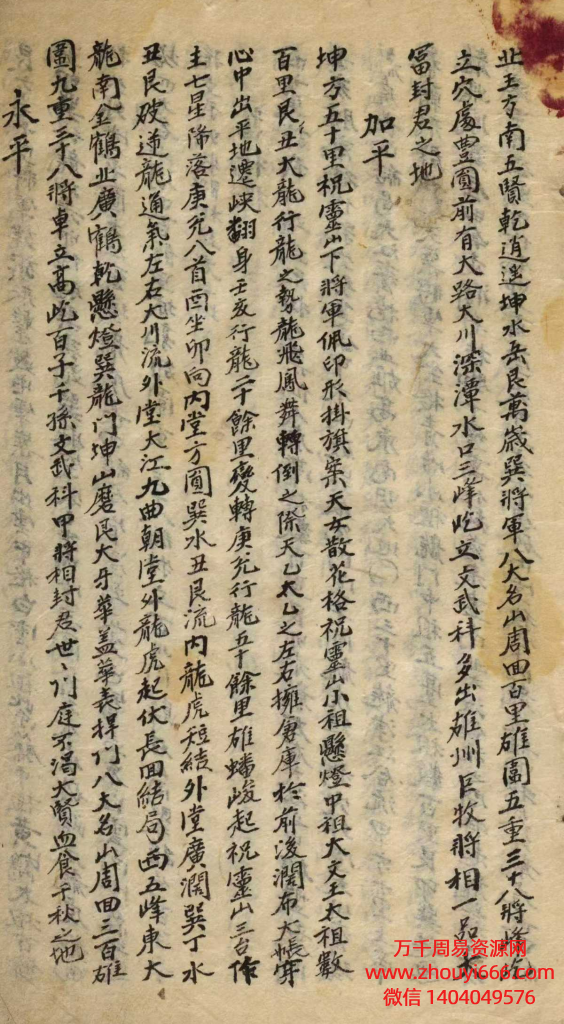 北王方南五賢乾逍遥坤水岳艮萬歲巽將軍八大名山周回百里雄圖五重三十八將條屹
立穴處豊圓前有大路大川深潭水口三峰屹立文武科多出雄州巨牧將相一品大
冨封君之地
加平
坤方五十里祝靈山下將軍佩印形掛旗案天女散花格祝靈山小祖懸燈中祖大文王太祖數
百里艮丑大龍行龍之勢龍飛鳳舞轉倒之際天乙太乙之左右擁倉庫於前後濶布大帳穿
心中出平地遷峽翻身壬亥行龍二十餘里變轉庚兊行龍五十餘里雄蟠峻起祝靈山三台作
主七星降落庚兊八首酉坐卯向內堂方圓巽水丑艮流內龍虎短結外堂廣濶巽丁水
丑艮破逆龍通氣左右大川流外堂大江九曲朝堂外龍虎起伏長回結局西五峰東大
龍南金鶴北廣鶴乾懸燈巽龍门坤山磨艮大牙華盖華表捍门八大名山周回三百雄
圖九重三十八將卓立高屹百子千孫文武科甲將相封君世〻门庭不渴大賢血食千秋之地
永平
万千周易资源网
www.zhouyi666.com
微信 1404049576